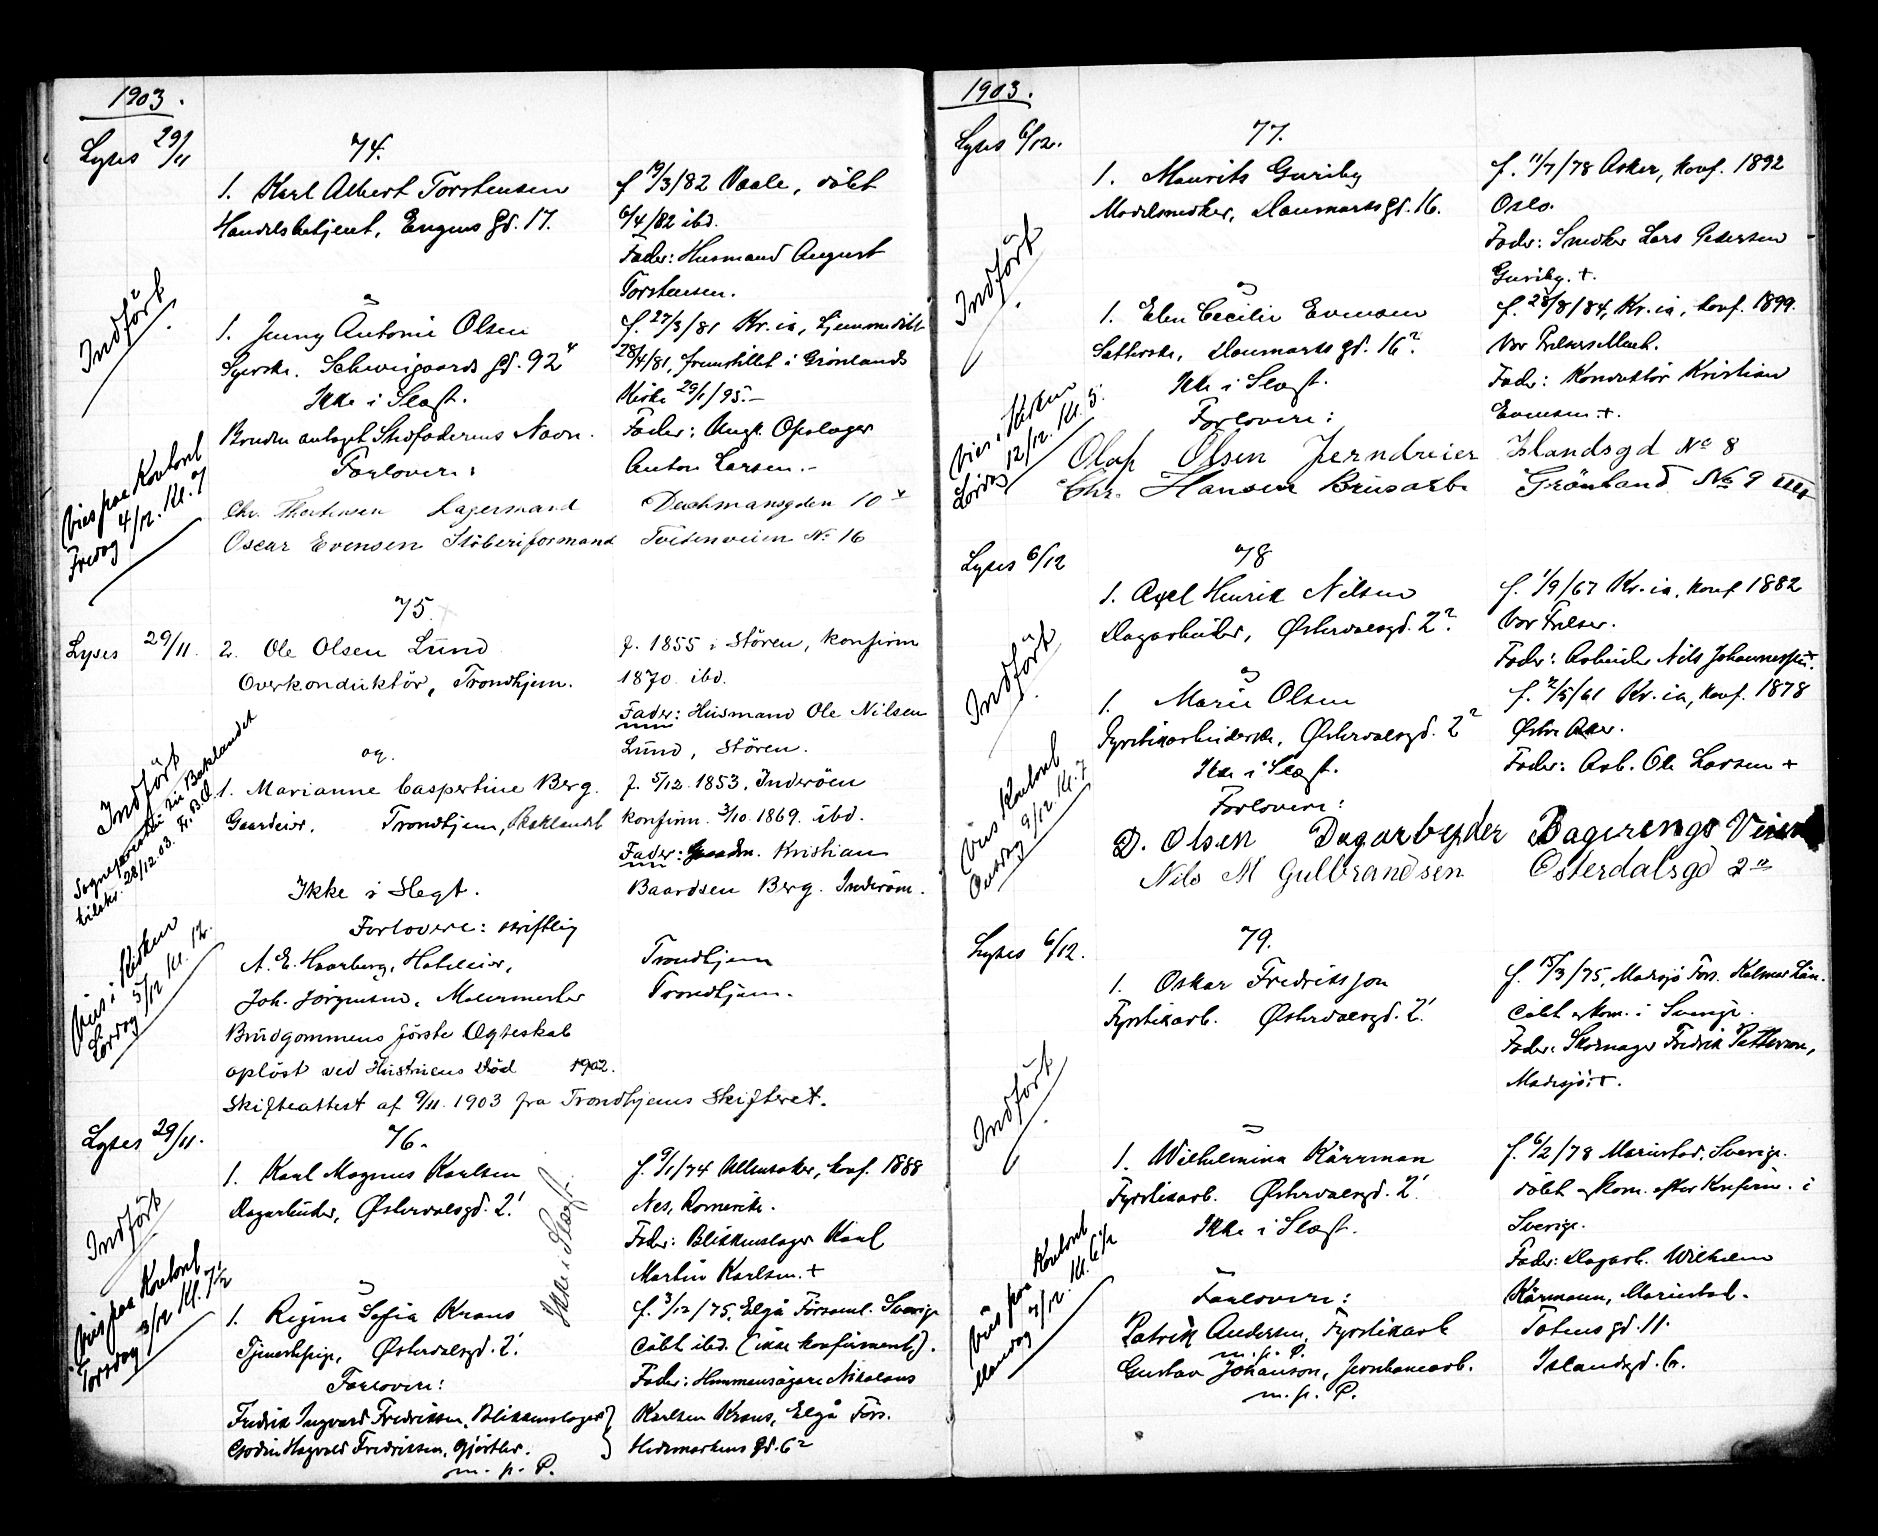 1903.
Lyses 29/11
74.
1. Karl Albert Torstensen
Handelsbetjent, Engens gd. 17.
f 19/3/82 Vaale, döbt
6/4/82 ibd.
Fader: Husmand August
Torstensen.
Indfört
&
1. Jenny Antonie Olsen
Syerske. Schweigaards gd. 92
Ikke i Slægt.
Bruden antaget Stedfaderens Navn.
Forlovere:
f. 27/3/81 Kr.ia, hjemmedöbt
28/4/81, fremstillet i Grönlands
Kirke 29/1/95.-
Fader: Ungk. Opslager
Anton Larsen.-
Vies paa Kontoret
Fredag 4/12. Kl. 7
Chr. Lagermand Deichmansgaden 10
Oscar Evensen Stöberiformand Tvetenveien No 16
75.
Lyses 29/11.
2. Ole Olsen Lund
Overkonduktör, Trondhjem.
f. 1855 i Stören, konfirm
1870 ibd.
Fader: Husmand Ole Nilsen
Lund, Stören.
og.
1. Marianne Caspertine Berg.
Gaardeier. Trondhjem, Baklandet
f. 5/12 1853, Inderöen
konfirm. 3/10. 1869. ibd.
Fader: Gaardm. Kristian
Baardsen Berg. Inderöen.
Indfört
Sognepresten til Baklandet
tilskr. 28/12.03. Fr. B.O.
Ikke i Slegt.
Forlovere: skriftlig
A. E. Haarberg, Hoteleier, Trondhjem
Joh. Jörgensen, Malermester Trondhjem.
Vies i Kirken
Lördag 5/12 Kl. 12.
Brudgommens förste Ægteskab
oplöst ved Hustruens Död 1902.
Skifteattest af 9/11. 1903 fra Trondhjems Skifteret.
Lyses 29/11.
76.
1. Karl Magnus Karlsen
Dagarbeider, Østerdalsgd. 2'.
f. 9/1/74 Ullensaker, konf. 1888
Nes, Romerike.
Fader: Blikkenslager Karl
Martin Karlsen. +
Ikke i Slægt.
Indfört
&
1. Regina Sofia Kraus
Tjenestepige, Østerdalsgd. 2'.
f. 3/12/75, Elgå Församl. Sverige
döbt ibd. (ikke konfirmeret).
Fader: Hemmansägare Nikolaus
Karlsen Kraus, Elgå Förs.
Vies paa Kontoret
Torsdag 3/12 Kl. 7 1/2
Forlovere:
Fredrik Ingvard Fredriksen, Blikkenslager }
Godin Hagvald Fredriksen, Gjörtler. } Hedemarkens gd. 6 2
m. p. P.
1903.
Lyses 6/12.
77.
1. Maurits Gureby
Modelsnedker, Danmarks gd. 16.
f. 11/7/78 Asker, konf. 1892
Oslo.
Fader: Snedker Lars Pedersen
Gureby. +.
Indfört
&
1. Elen Cecilie Evensen
Satterske, Danmarks gd. 16 2.
Ikke i Slægt.
Forlovere:
f. 28/8/84, Kr.ia, konf. 1899.
Vor Frelsers Menh.
Fader: Konduktör Kristian
Evensen. +.
Vies i Kirken
Lördag 12/12. Kl. 5.
Olaf Olsen Jerndreier Islandsgd No 8
Chr. Hansen Brusarb. Grönland No 9 IIII
Lyses 6/12
78
1. Axel Henrik Nilsen
Dagarbeider, Østerdalsgd. 2 2.
f. 1/9/67 Kr.ia, konf 1882
Vor Frelser.
Fader: Arbeider Nils Johannessen +.
Indfört
&
1. Marie Olsen
Fyrstikarbeiderske, Østerdalsgd. 2 2
Ikke i Slægt.
Forlovere:
f. 2/5/61 Kr.ia, konf. 1878
Østre Aker.
Fader: Arb. Ole Larsen +
Vies Kontoret
Onsdag 9/12. Kl. 7
D. Olsen Dagarbeyder Bagerengs Veien
Nils M Gulbrandsen Osterdalsgd 2
Lyses 6/12.
79.
1. Oskar Fredriksson
Fyrstikarb. Østerdalsgd. 2'.
f. 15/3/75, Madesjö Förs. Kalmar Län.
döbt & kom. i Sverige.
Fader: Skomager Fredrik Petterson,
Madesjö. +.
Indfört
&
1. Wilhelmina Kärrman
Fyrstikarb. Østerdalsgd. 2'.
Ikke i Slægt.
f. 6/2/78 Mariestad, Sverige.
döbt & kom. efter Konfirm. i
Sverige.
Fader: Dagarb. Wilhelm
Kärmann, Mariestad.
Vies paa Kontoret
Mandag 7/12. Kl. 6 1/2
Forlovere:
Patrik Andersen, Fyrstikarb Totens gd. 11.
m. p. P.
Gustav Johanson, Jernbanearb. Islandsgd. 6.
m. p. P.